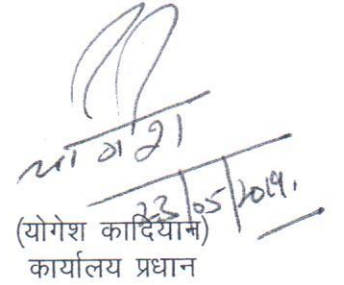 योगेश
23/05/2019.
(योगेश कादियान)
कार्यालय प्रधान